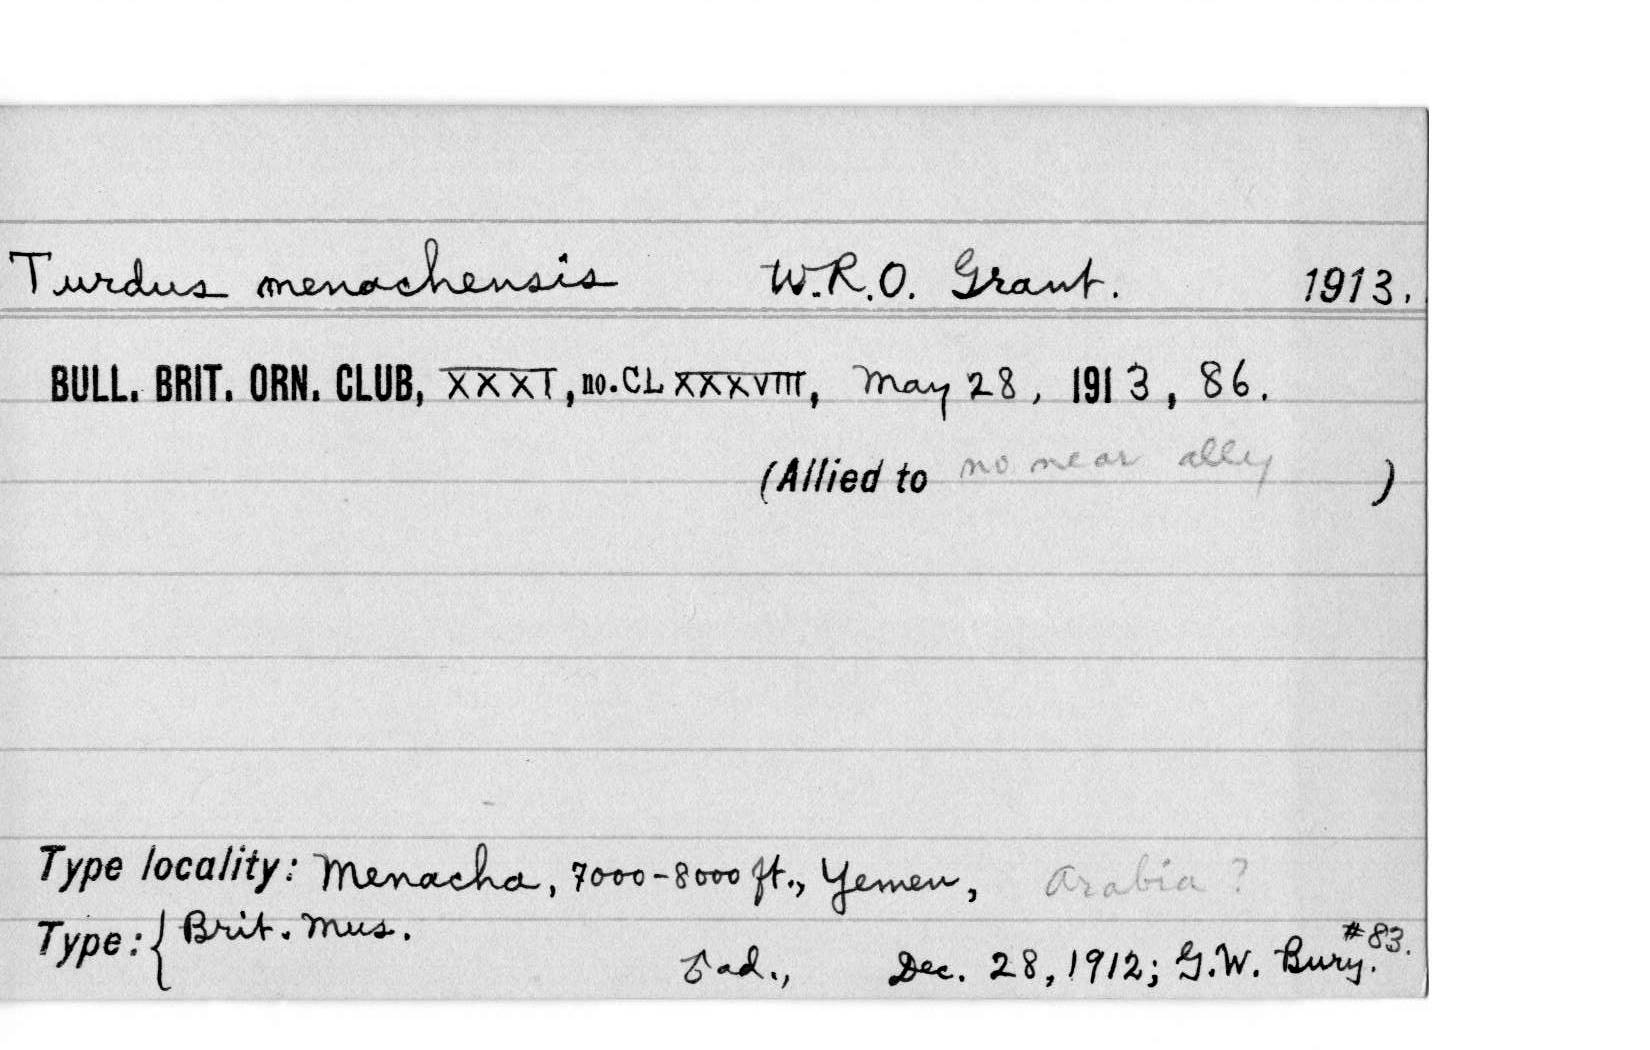 Turdus menachensis W.R.O. Grant. 1913.
BULL. BRIT. ORN. CLUB, XXXI, no. CLXXXVIII, May 28, 1913, 86.
(Allied to no near ally )
Type locality: Menacha, 7000-8000 ft., Yemen, Arabia ?
Type: { Brit. Mus.
ad., Dec. 28, 1912; G.W. Bury. #83.